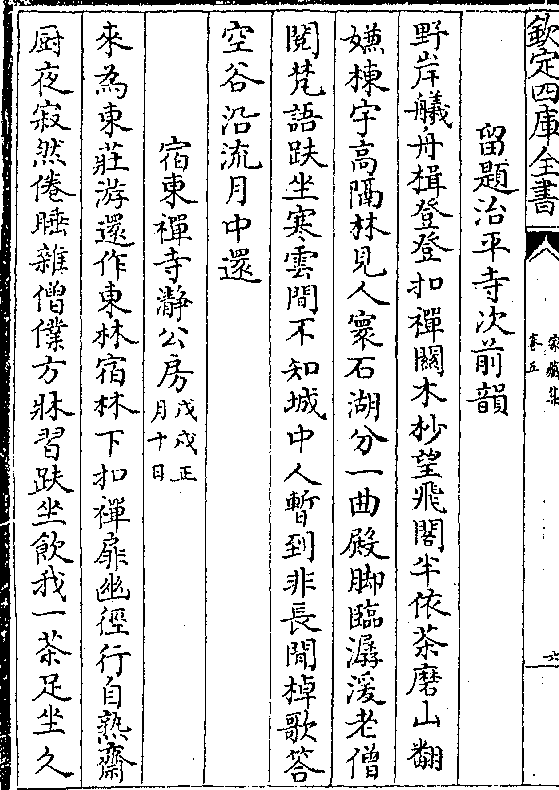 欽定四庫全書
家藏集
卷五
六
留題治平寺次前韻
野岸艤舟楫登登扣禪關木杪望飛閣半依茶磨山翻
嫌棟宇高隔林見人寰石湖分一曲殿脚臨潺湲老僧
閱梵語趺坐寒雲間不知城中人暫到非長閒棹歌答
空谷沿流月中還
宿東禪寺瀞公房戊戌正月十日
來為東莊游還作東林宿林下扣禪扉幽徑行自熟齋
厨夜寂然倦睡雜僧僕方牀習趺坐飲我一茶足坐久